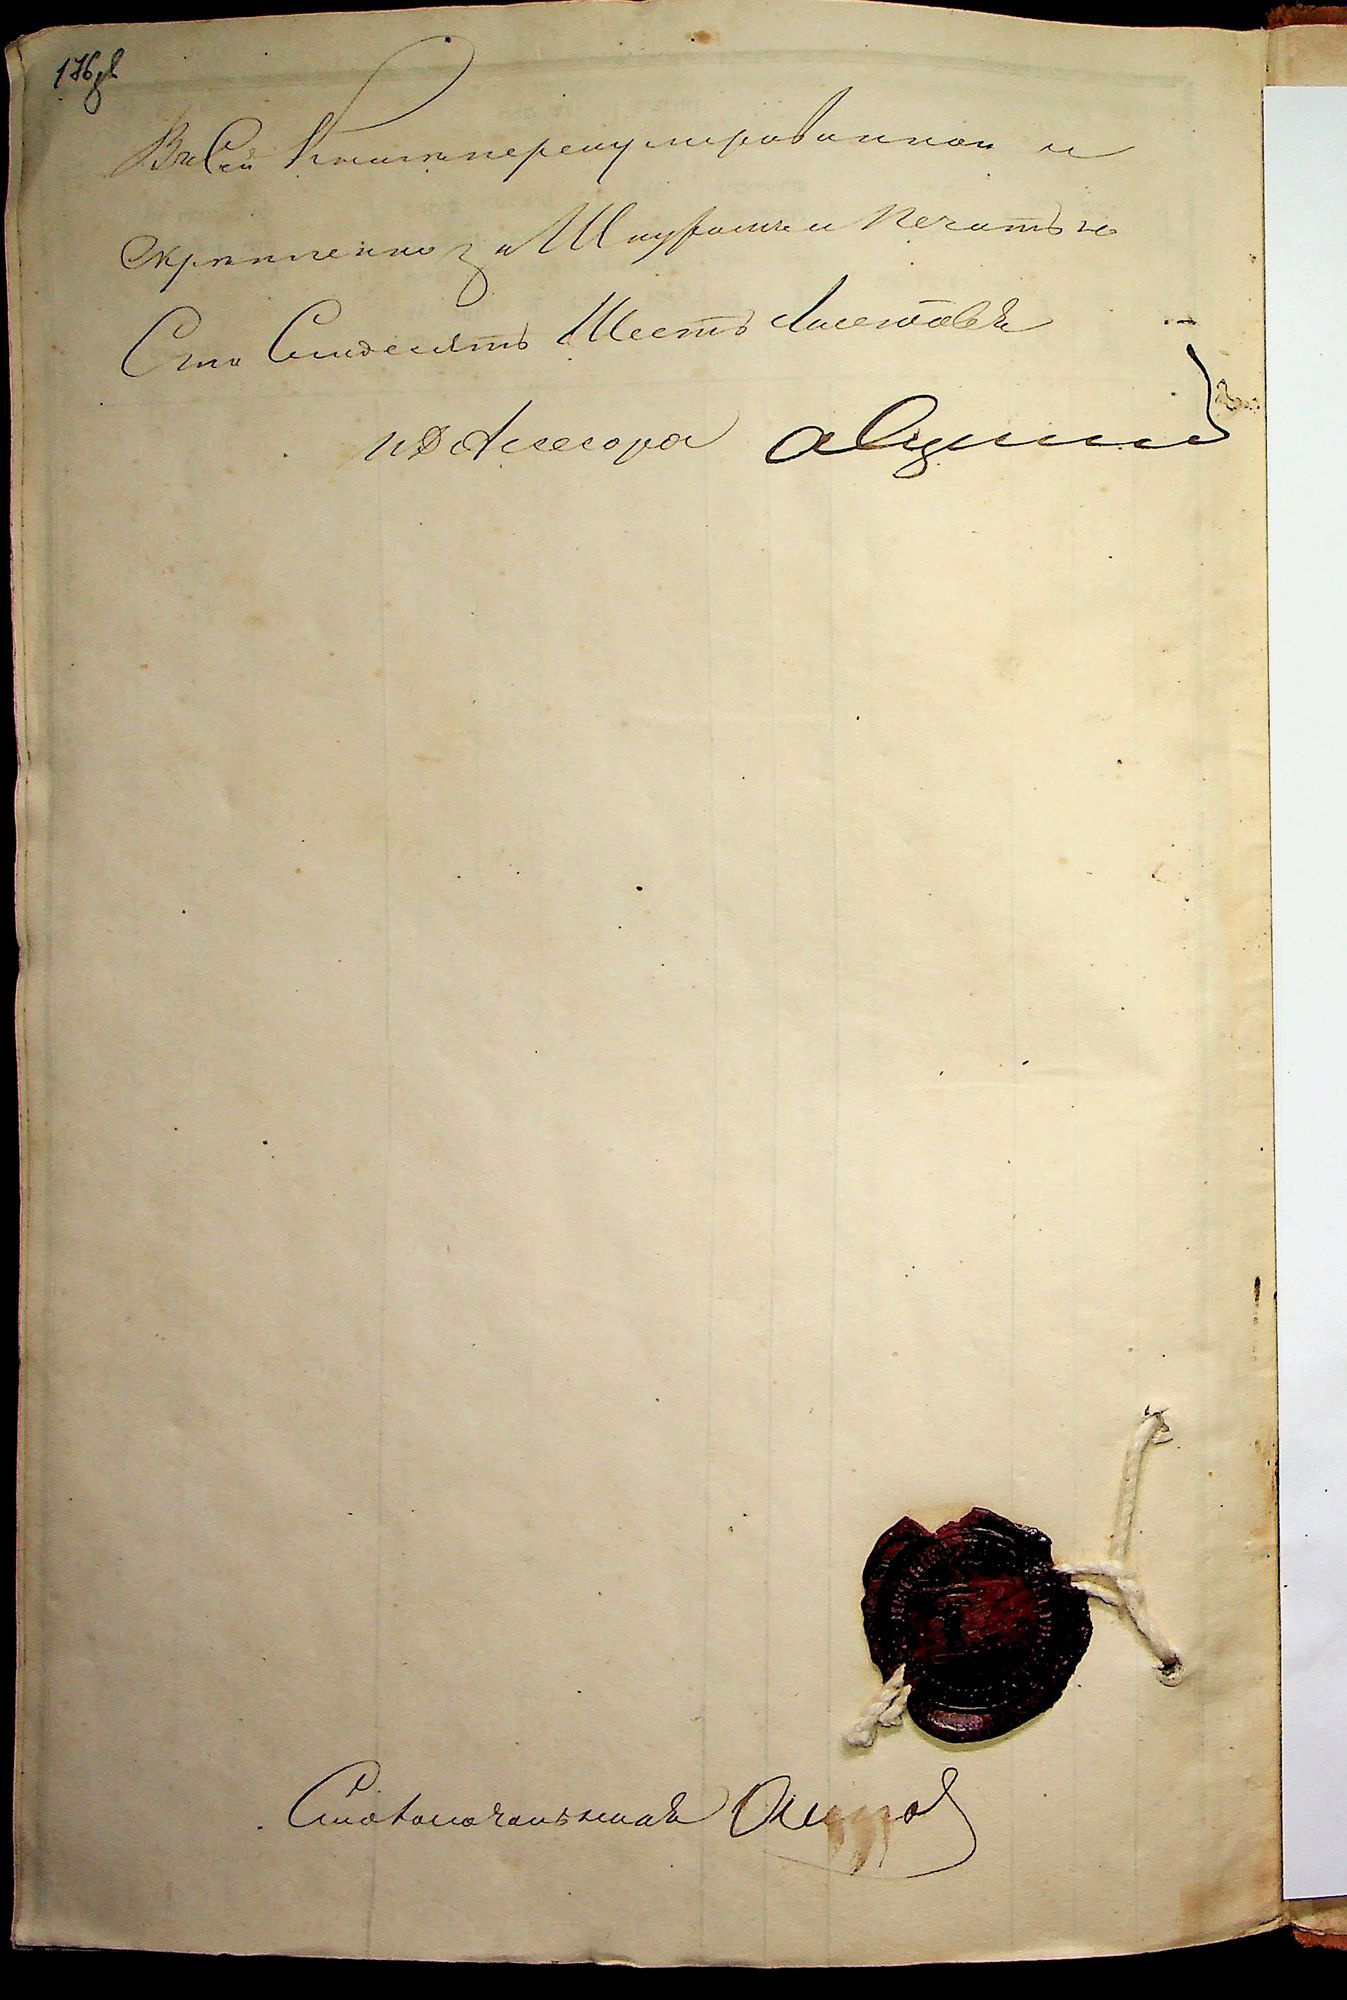 176 об
Въ Сей Книгѣ перенумерованной и
Скрѣпленно за Шнуромъ и Печатью
Сто Семдесятъ Шесть Листовъ
И Д Асесора
Столоначальникъ Осипов